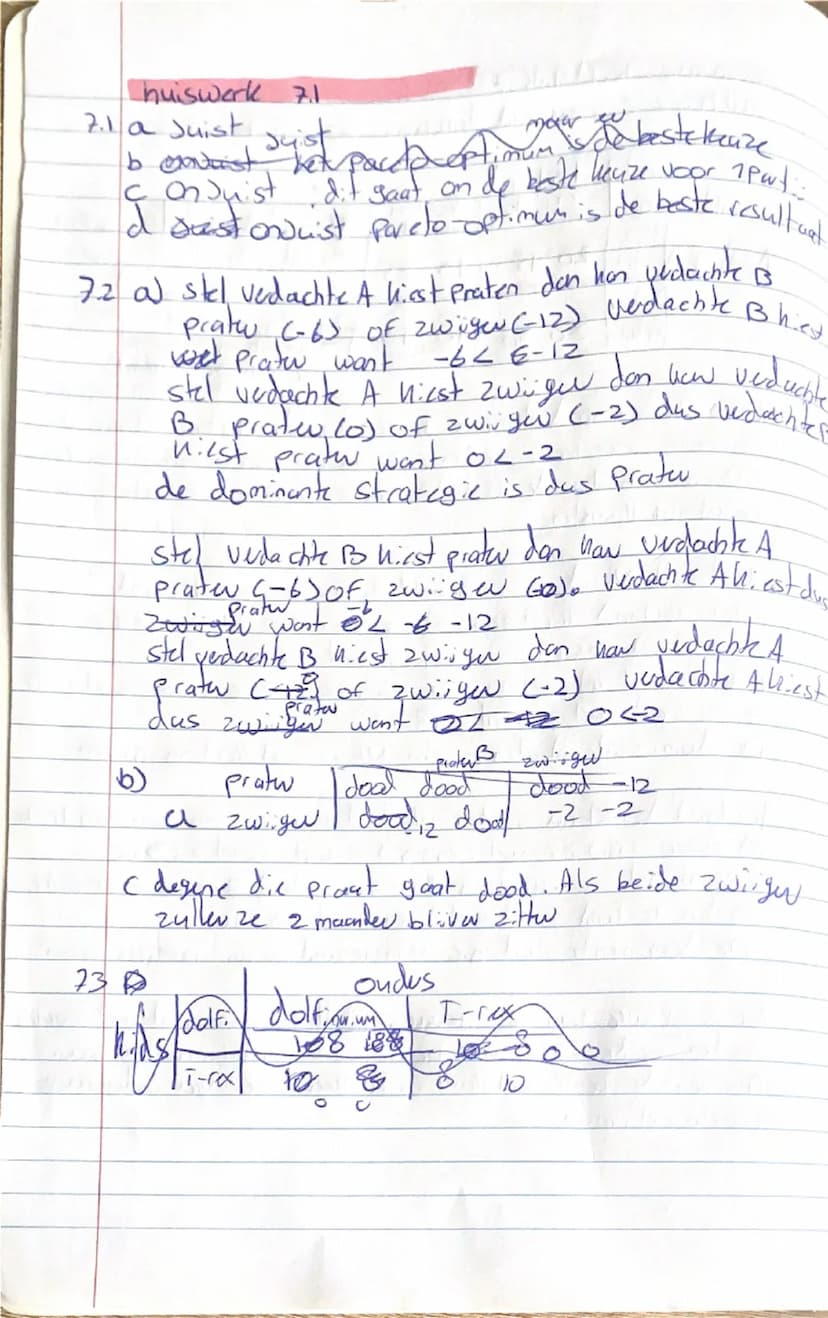 huiswerk 7.1
7.1 a Juist
b Juist het pareto-optimum is de beste keuze
c Onjuist dit gaat om de beste keuze voor 1 part
d onjuist pareto-optimum is de beste resultaat
7.2 a) stel verdachte A kiest praten dan kan verdachte B
praten (-6) of zwijgen (-12) verdachte B kiest
praten want -6 < -12
stel verdachte A kiest zwijgen dan kan verdachte
B praten (0) of zwijgen (-2) dus verdachte B
kiest praten want 0 < -2
de dominante strategie is dus praten
stel verdachte B kiest praten dan kan verdachte A
praten (-6) of zwijgen. verdachte A kiest dus
praten want -6 < -12
stel verdachte B kiest zwijgen dan kan verdachte A
praten of zwijgen (-2) verdachte A kiest
dus praten want 0<-2
praten B zwijgen
b) praten dood dood dood -12
a zwijgen -12 dood -2 -2
c degene die praat gaat dood. Als beide zwijgen
zullen ze 2 maanden blijven zitten
73 ouders
kids dolf. dolfinarium T-rex
8 188 8 0 0
T-rex 8 10
0 0